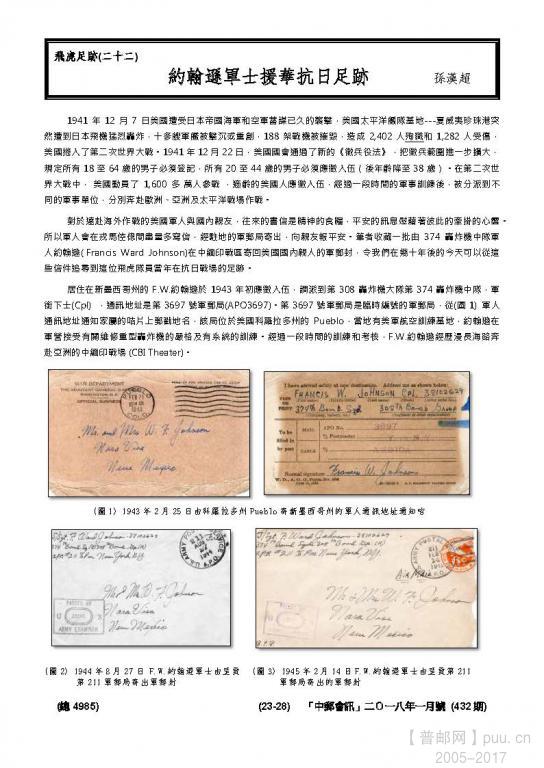 飛虎足跡(二十二)
約翰遜軍士援華抗日足跡
孫漢超
1941 年 12 月 7 日美國遭受日本帝國海軍和空軍蓄謀已久的襲擊，美國太平洋艦隊基地---夏威夷珍珠港突
然遭到日本飛機猛烈轟炸，十多艘軍艦被擊沉或重創，188 架戰機被摧毀，造成 2,402 人殉職和 1,282 人受傷，
美國捲入了第二次世界大戰。1941 年 12 月 22 日，美國國會通過了新的《徵兵役法》，把徵兵範圍進一步擴大，
規定所有 18 至 64 歲的男子必須登記，所有 20 至 44 歲的男子必須應徵入伍（後年齡降至 38 歲）。在第二次世
界大戰中， 美國動員了 1,600 多 萬人參戰 ，適齡的美國人應徵入伍，經過一段時間的軍事訓練後，被分派到不
同的軍事單位，分別奔赴歐洲、亞洲及太平洋戰場作戰。
對於遠赴海外作戰的美國軍人與國內親友，往來的書信是精神的食糧，平安的訊息慰藉著彼此的牽掛的心靈。
所以軍人會在戎馬倥傯間盡量多寫信，經駐地的軍郵局寄出，向親友報平安。筆者收藏一批由 374 轟炸機中隊軍
人約翰遜( Francis Ward Johnson)在中緬印戰區寄回美國國內親人的軍郵封，令我們在幾十年後的今天可以從這
些信件追尋到這位飛虎隊員當年在抗日戰場的足跡。
居住在新墨西哥州的 F.W.約翰遜於 1943 年初應徵入伍，調派到第 308 轟炸機大隊第 374 轟炸機中隊，軍
銜下士(Cpl) ，通訊地址是第 3697 號軍郵局(APO3697)。第 3697 號軍郵局是臨時編號的軍郵局，從(圖 1) 軍人
通訊地址通知家屬的咭片上郵戳地名，該局位於美國科羅拉多州的 Pueblo，當地有美軍航空訓練基地，約翰遜在
軍營接受有關維修重型轟炸機的嚴格及有系統的訓練。經過一段時間的訓練和考核，F.W.約翰遜經歷漫長海路奔
赴亞洲的中緬印戰場 (CBI Theater)。
WAR DEPARTMENT
THE ADJUTANT GENERAL'S OFFICE
WASHINGTON, D.C.
OFFICIAL BUSINESS
PUEBLO
COLO.
Mr. and Mrs W. F. Johnson
Nara Visa
New Mexico
I have arrived safely at new destination. Address me as shown below:
FRANCIS W. JOHNSON CPL. 38102629
374th Bomb. Sqd. 308th Bomb. Group
APO No. 3697
% Postmaster
Normal signature Francis W. Johnson
(圖 1) 1943 年 2 月 25 日由科羅拉多州 Pueblo 寄新墨西哥州的軍人通訊地址通知咭
Mr & Mrs W. F. Johnson
Nara Visa
New Mexico
PASSED BY
U S
ARMY EXAMINER
Air Mail
Mr & Mrs W. F. Johnson
Nara Visa
New Mexico
(圖 2) 1944 年 8 月 27 日 F.W.約翰遜軍士由呈貢
第 211 軍郵局寄出軍郵封
(圖 3) 1945 年 2 月 14 日 F.W.約翰遜軍士由呈貢第 211
軍郵局寄出的軍郵封
(總 4985)
(23-28)
「中郵會訊」二〇一八年一月號 (432 期)
【普邮网】puu.cn
2005-2017